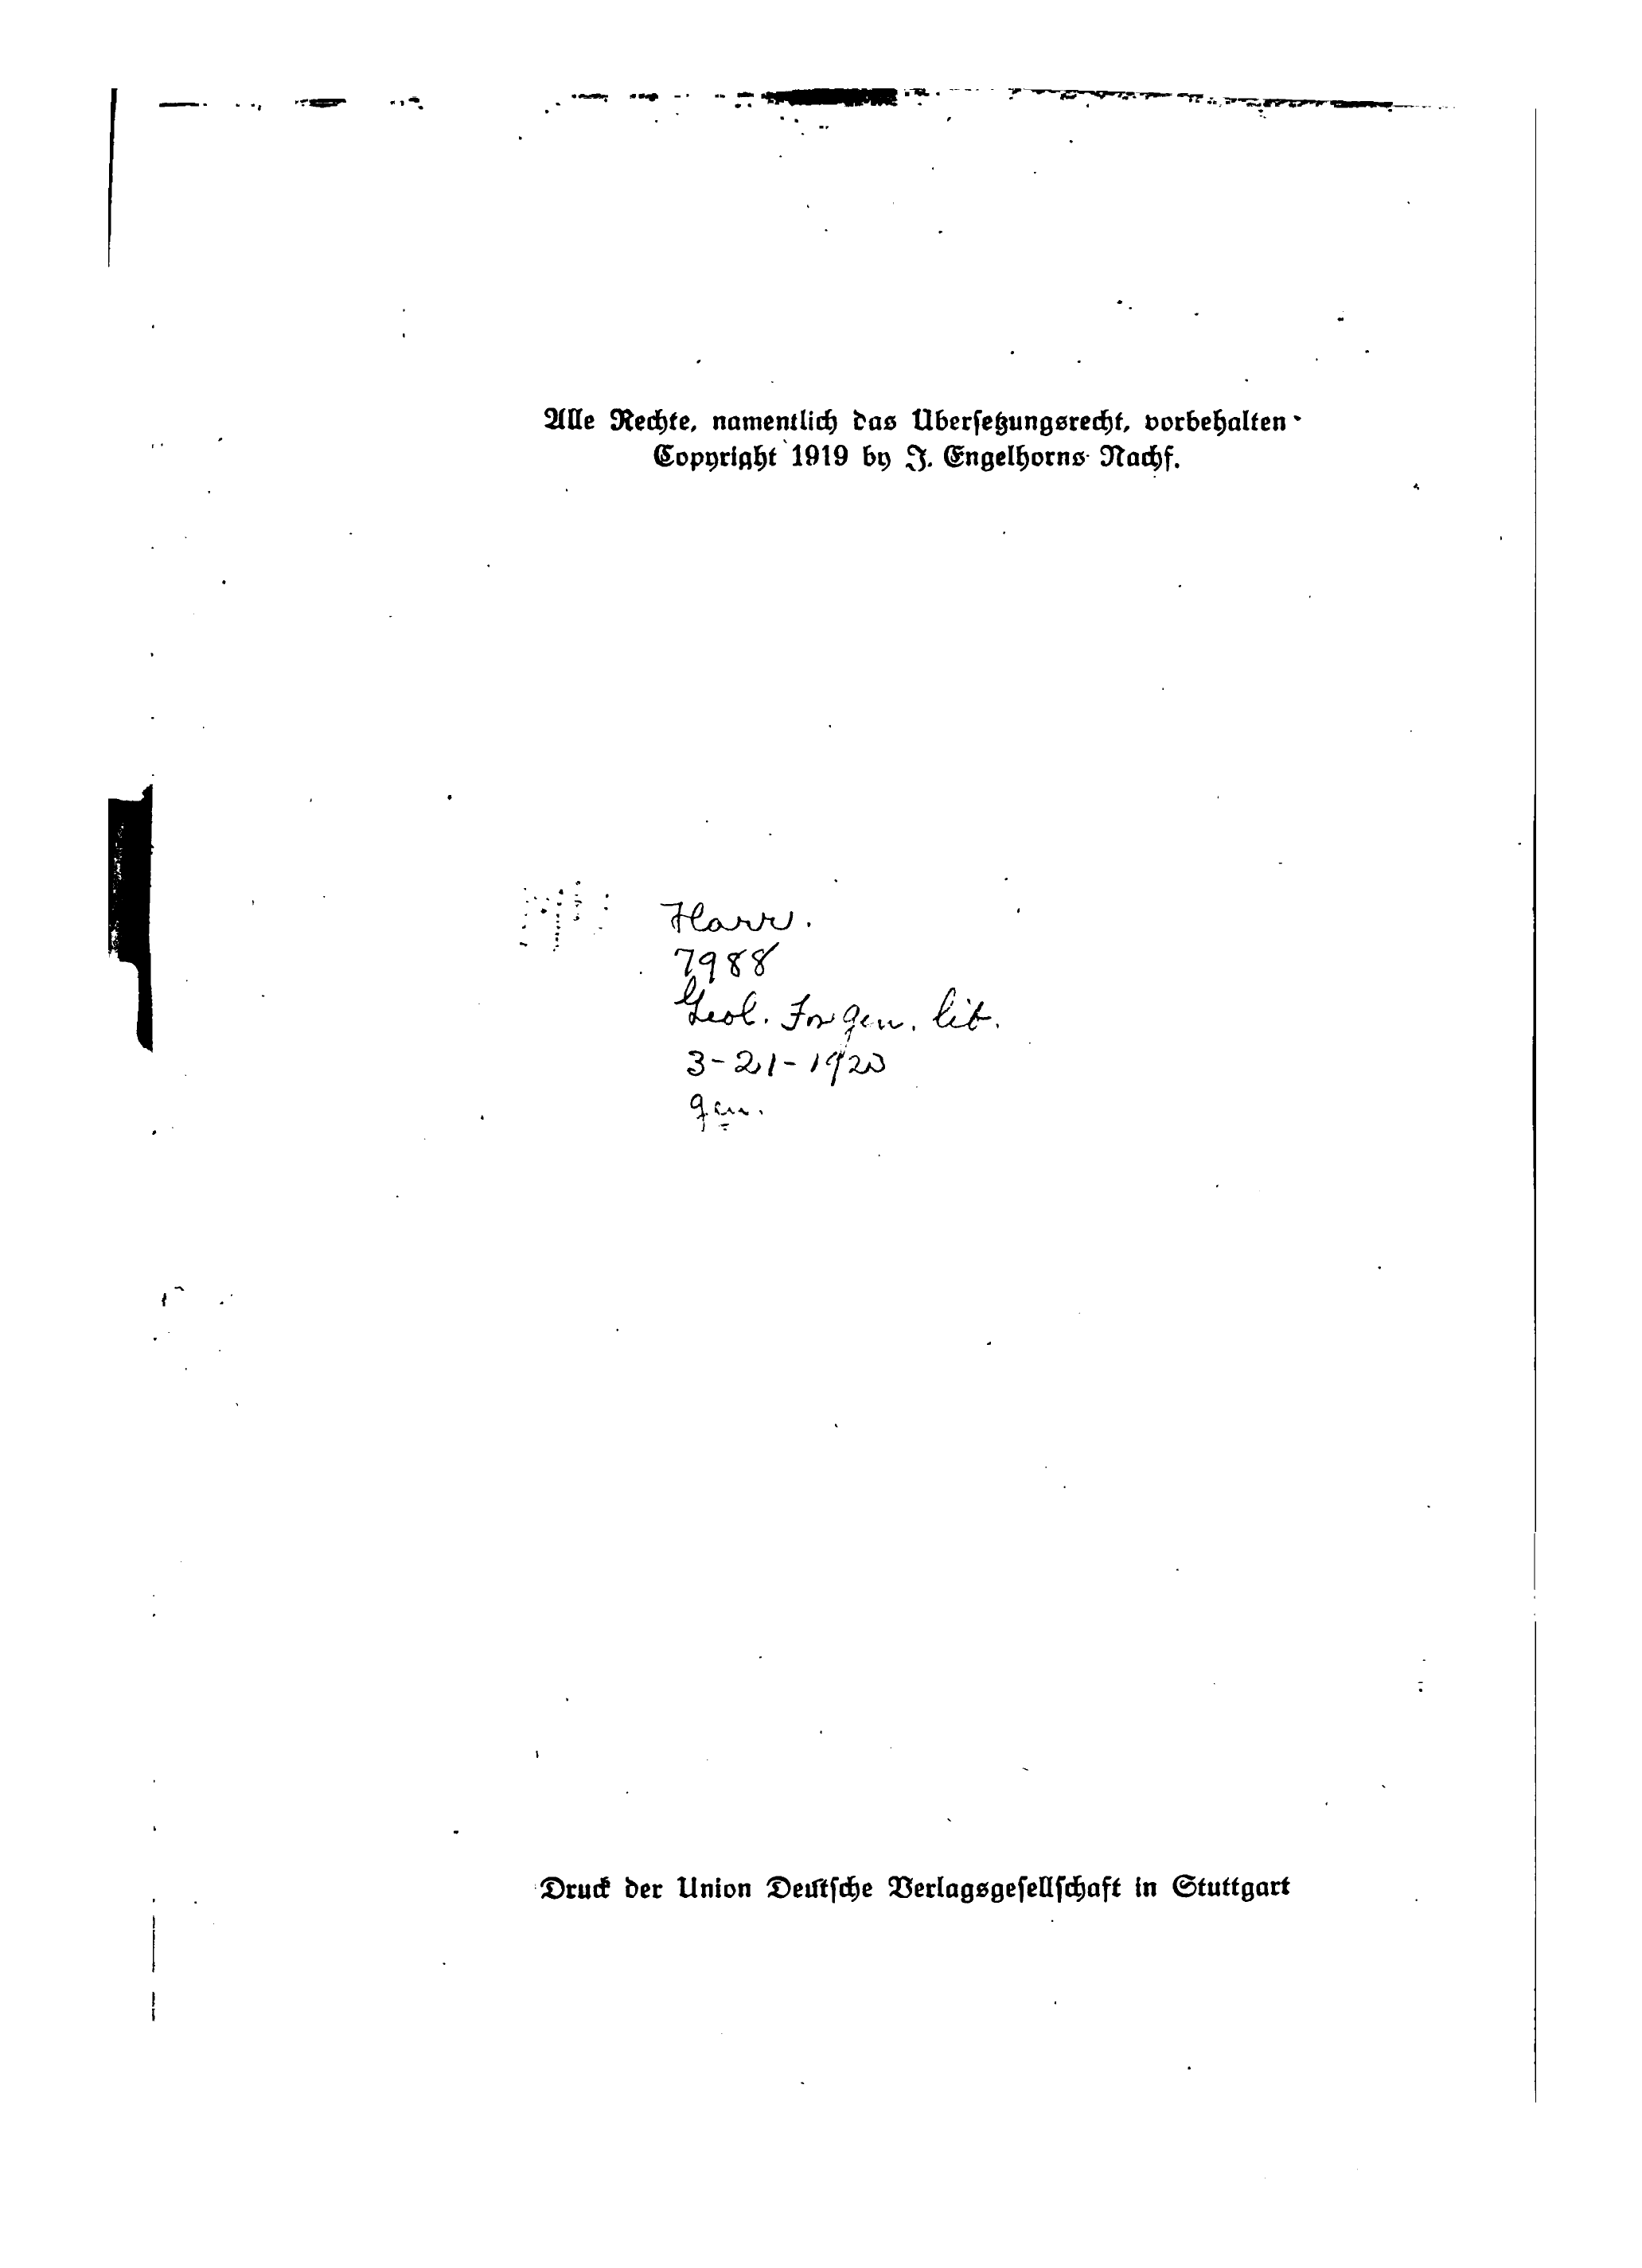 Alle Rechte, namentlich das Übersetzungsrecht, vorbehalten
Copyright 1919 by J. Engelhorns Nachf.
Harr.
7988
Geol. For gen. lit.
3-21-1923
gen.
Druck der Union Deutsche Verlagsgesellschaft in Stuttgart